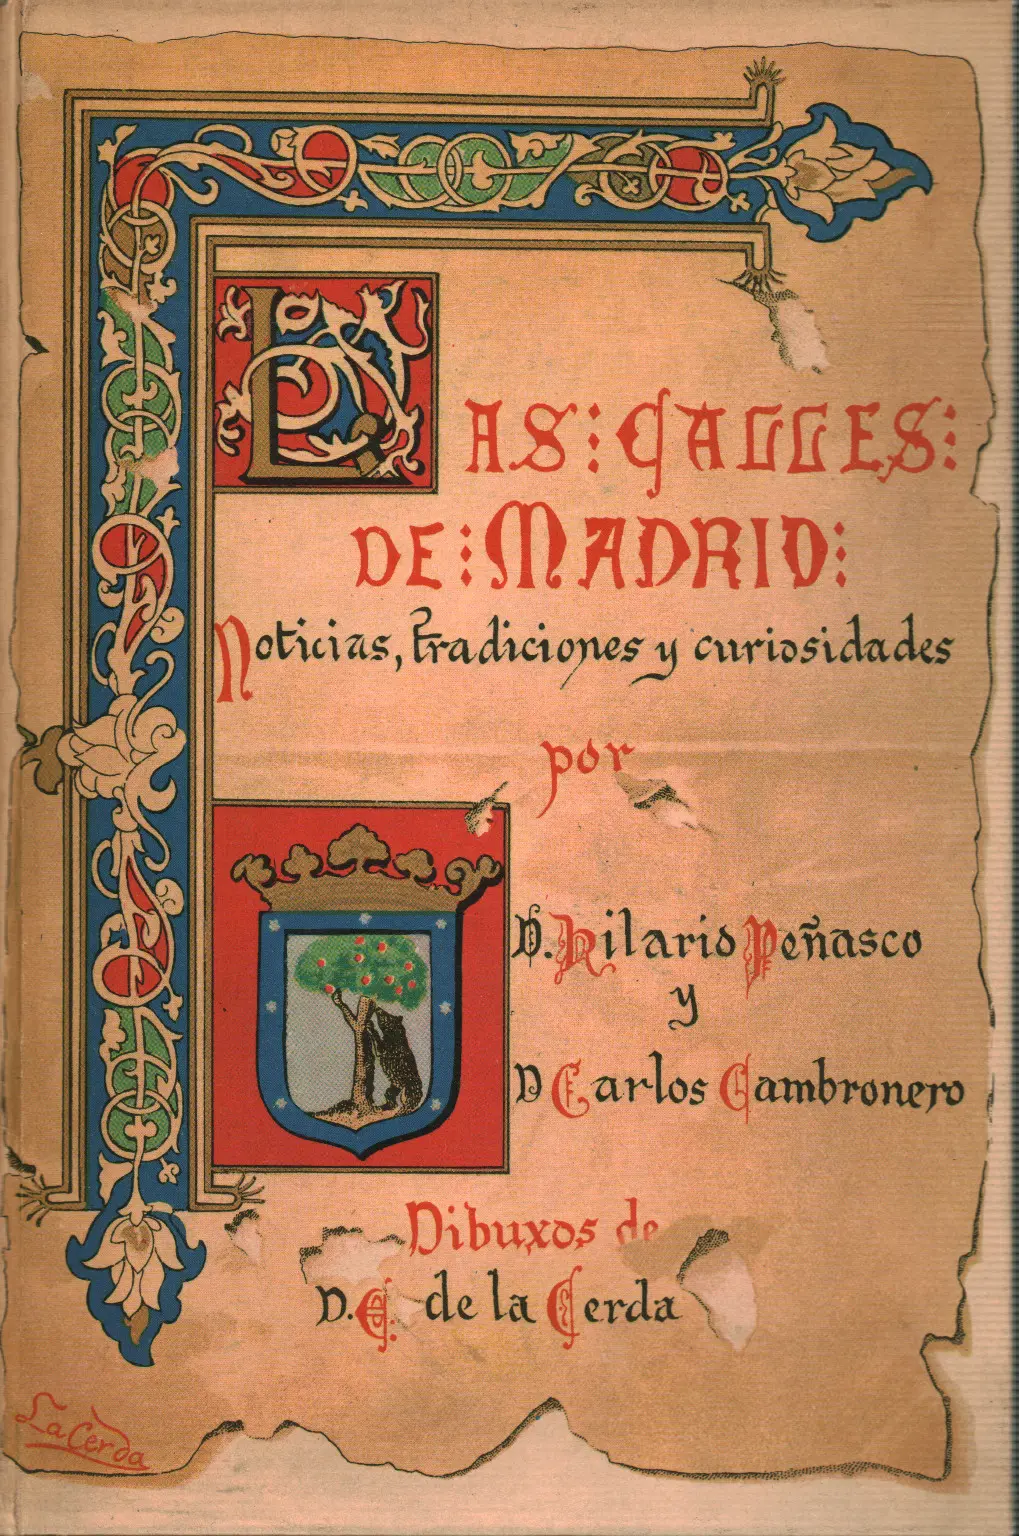 LAS : CALLES :
DE : MADRID :
Noticias, tradiciones y curiosidades
por
D. Hilario Peñasco
y
D Carlos Cambronero
Dibuxos de
D. E. de la Cerda
La Cerda